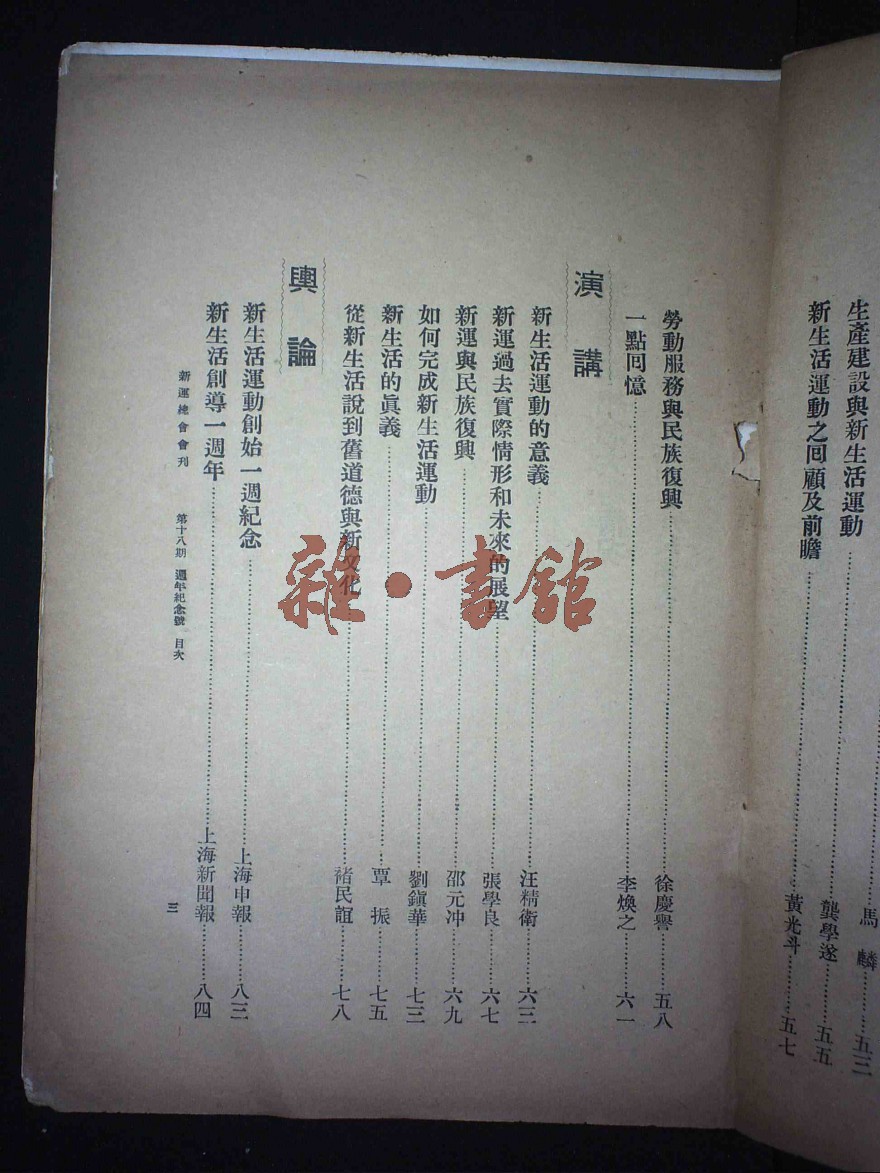 馬麟……五三
生產建設與新生活運動……龔學遂……五五
新生活運動之回顧及前瞻……黃光斗……五七
勞動服務與民族復興……徐慶譽……五八
一點回憶……李煥之……六一
演講
新生活運動的意義……汪精衛……六三
新運過去實際情形和未來的展望……張學良……六七
新運與民族復興……邵元冲……六九
如何完成新生活運動……劉鎭華……七三
新生活的眞義……覃振……七五
從新生活說到舊道德與新文化……褚民誼……七八
輿論
新生活運動創始一週紀念……上海申報……八三
新生活創導一週年……上海新聞報……八四
新運總會會刊 第十八期 週年紀念號 目次 三
雜·書館